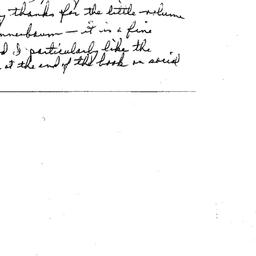 thanks for the little volume
— it is a fine
I particularly like the
at the end of the book on social